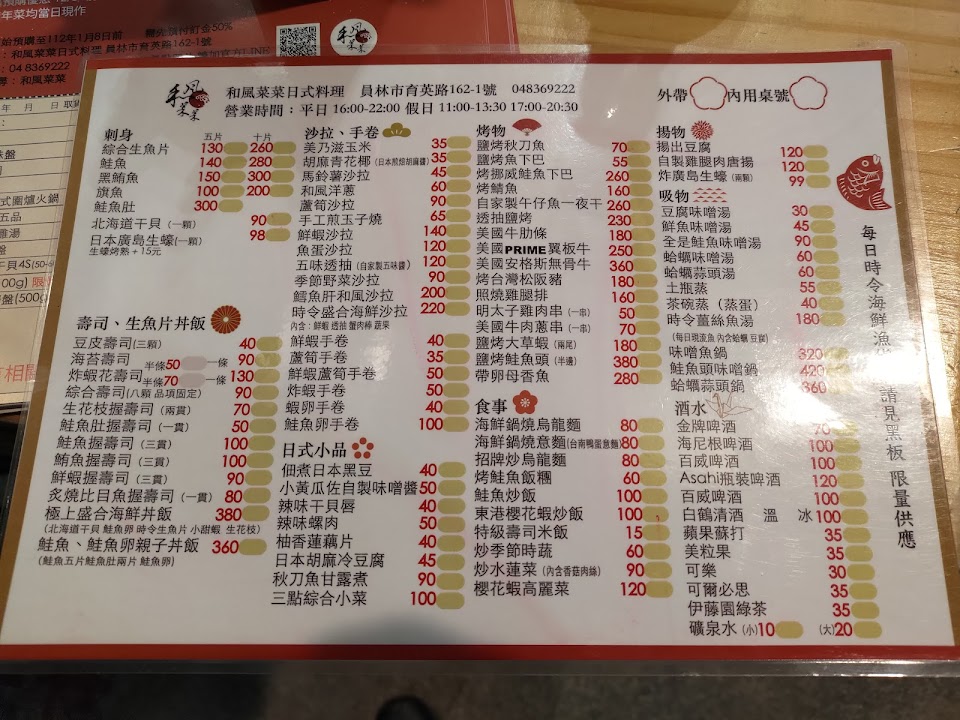 年菜均當日現作
始預購至112年1月8日前 需先預付訂金50%
: 和風菜菜日式料理 員林市育英路162-1號
: 04 8369222
: 和風菜菜
和風菜菜
和風菜菜日式料理 員林市育英路162-1號 048369222
營業時間：平日 16:00-22:00 假日 11:00-13:30 17:00-20:30
外帶 內用桌號
刺身 五片 十片
綜合生魚片 130 260
鮭魚 140 280
黑鮪魚 150 300
旗魚 100 200
鮭魚肚 300
北海道干貝 (一顆) 90
日本廣島生蠔(一顆) 98
生蠔烤熟+15元
壽司、生魚片丼飯
豆皮壽司(三顆) 40
海苔壽司 半條50 一條 90
炸蝦花壽司 半條70 一條 130
綜合壽司(八顆 品項固定) 90
生花枝握壽司 (兩貫) 70
鮭魚肚握壽司 (一貫) 50
鮭魚握壽司 (三貫) 100
鮪魚握壽司 (三貫) 100
鮮蝦握壽司 (三貫) 90
炙燒比目魚握壽司 (一貫) 80
極上盛合海鮮丼飯 380
(北海道干貝 鮭魚卵 時令生魚片 小甜蝦 生花枝)
鮭魚、鮭魚卵親子丼飯 360
(鮭魚五片鮭魚肚兩片 鮭魚卵)
沙拉、手卷
美乃滋玉米 35
胡麻青花椰 (日本煎焙胡麻醬) 35
馬鈴薯沙拉 45
和風洋蔥 60
蘆筍沙拉 90
手工煎玉子燒 65
鮮蝦沙拉 140
魚蛋沙拉 120
五味透抽 (自家製五味醬) 120
季節野菜沙拉 90
鱈魚肝和風沙拉 200
時令盛合海鮮沙拉 220
內含：鮮蝦 透抽 蟹肉棒 蔬果
鮮蝦手卷 40
蘆筍手卷 35
鮮蝦蘆筍手卷 50
炸蝦手卷 50
蝦卵手卷 40
鮭魚卵手卷 100
日式小品
佃煮日本黑豆 40
小黃瓜佐自製味噌醬 50
辣味干貝唇 40
辣味螺肉 50
柚香蓮藕片 40
日本胡麻冷豆腐 45
秋刀魚甘露煮 90
三點綜合小菜 100
烤物
鹽烤秋刀魚 70
鹽烤魚下巴 55
烤挪威鮭魚下巴 260
烤鯖魚 160
自家製午仔魚一夜干 260
透抽鹽烤 230
美國牛肋條 180
美國PRIME翼板牛 250
美國安格斯無骨牛 360
烤台灣松阪豬 180
照燒雞腿排 160
明太子雞肉串 (一串) 50
美國牛肉蔥串 (一串) 70
鹽烤大草蝦 (兩尾) 180
鹽烤鮭魚頭 (半邊) 380
帶卵母香魚 280
食事
海鮮鍋燒烏龍麵 80
海鮮鍋燒意麵(台南鴨蛋意麵) 80
招牌炒烏龍麵 80
烤鮭魚飯糰 60
鮭魚炒飯 100
東港櫻花蝦炒飯 100
特級壽司米飯 15
炒季節時蔬 60
炒水蓮菜 (內含香菇肉絲) 90
櫻花蝦高麗菜 120
揚物
揚出豆腐 120
自製雞腿肉唐揚 120
炸廣島生蠔 (兩顆) 99
吸物
豆腐味噌湯 30
鮮魚味噌湯 45
全是鮭魚味噌湯 90
蛤蠣味噌湯 60
蛤蠣蒜頭湯 60
土瓶蒸 55
茶碗蒸 (蒸蛋) 40
時令薑絲魚湯 180
(每日現流魚 內含蛤蠣 豆腐)
味噌魚鍋 320
鮭魚頭味噌鍋 420
蛤蠣蒜頭鍋 360
酒水
金牌啤酒 70
海尼根啤酒 100
百威啤酒 100
Asahi瓶裝啤酒 120
百威啤酒 100
白鶴清酒 溫 冰 100
蘋果蘇打 35
美粒果 35
可樂 30
可爾必思 35
伊藤園綠茶 35
礦泉水 (小)10 (大)20
每日時令海鮮漁 請見黑板 限量供應